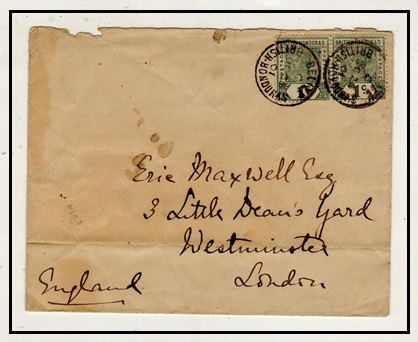 BRITISH HONDURAS
BELIZE
BRITISH HONDURAS
1c
Eric Maxwell Esq
3 Little Dean's Yard
Westminster
London
England